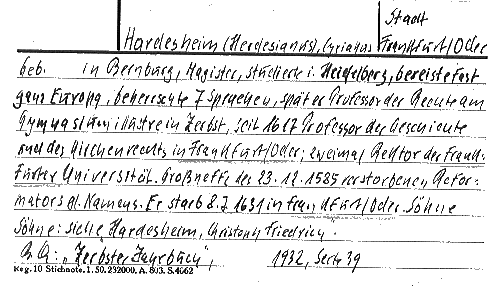 Stadt
Hardesheim (Herdesianus), Cyriakus Frankfurt/Oder
geb. in Bernburg, Magister, studierte i. Heidelberg, bereiste fast
ganz Europa, beherrschte 7 Sprachen, später Professor der Rechte am
Gymnasium illustre in Zerbst, seit 1617 Professor der Geschichte
und des Kirchenrechts in Frankfurt/Oder; zweimal Rektor der Frank-
furter Universität. Großneffe des 23.12.1585 verstorbenen Refor-
mators gl. Namens. Er starb 8.7.1631 in Frankfurt/Oder. Söhne
Söhne: siehe Hardesheim, Christoph Friedrich.
"Zerbster Jahrbuch", 1932, Seite 39
Reg. 10 Stichnote. 1. 50. 232000. A. 803. S. 4662